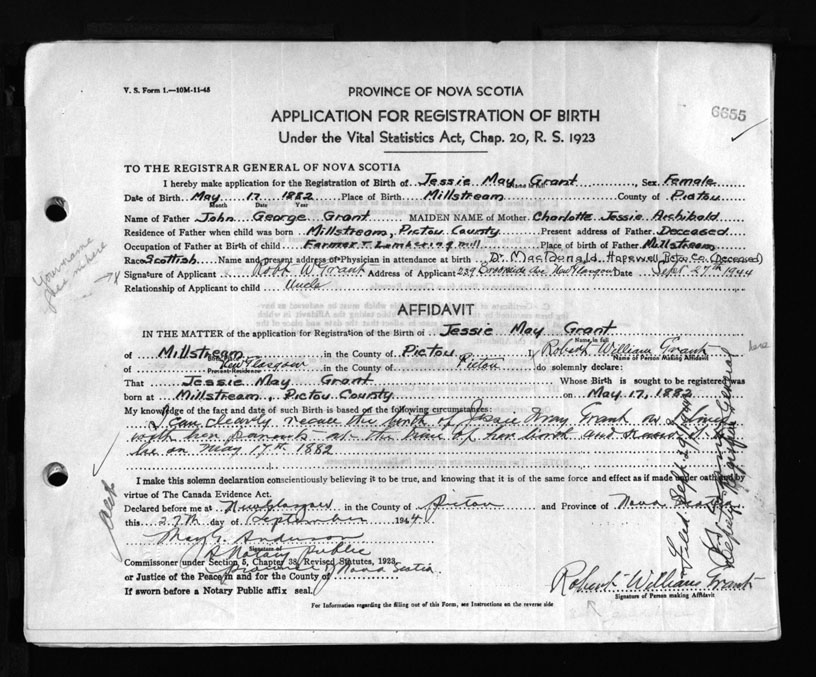 V. S. Form 1.—10M-11-43
PROVINCE OF NOVA SCOTIA
6655
APPLICATION FOR REGISTRATION OF BIRTH
Under the Vital Statistics Act, Chap. 20, R. S. 1923
TO THE REGISTRAR GENERAL OF NOVA SCOTIA
I hereby make application for the Registration of Birth of Jessie May Grant, Sex Female
Name in full
Date of Birth May 17 1882 Place of Birth Millstream County of Pictou
Month Date Year
Name of Father John George Grant MAIDEN NAME of Mother Charlotte Jessie Archibald
Residence of Father when child was born Millstream, Pictou County Present address of Father Deceased
Occupation of Father at Birth of child Farmer & Lumbering mill Place of birth of Father Millstream
Race Scottish Name and present address of Physician in attendance at birth Dr. MacDonald Hopewell Pictou Co. (Deceased)
Signature of Applicant Robt W. Grant Address of Applicant 239 Brookside Av. New Glasgow Date Sept 27th 1944
Relationship of Applicant to child Uncle
Your name
here
AFFIDAVIT
IN THE MATTER of the application for Registration of the Birth of Jessie May Grant
Name in full
of Millstream in the County of Pictou I, Robert William Grant
Birth Place
Name of Person Making Affidavit
here
of New Glasgow in the County of Pictou do solemnly declare:
Present Residence
That Jessie May Grant Whose Birth is sought to be registered was
born at Millstream, Pictou County on May 17, 1882
My knowledge of the fact and date of such Birth is based on the following circumstances:
I can clearly recall the birth of Jessie May Grant as I lived
with her parents at the time of her birth and know it to
be on May 17th 1882
I make this solemn declaration conscientiously believing it to be true, and knowing that it is of the same force and effect as if made under oath and by
virtue of The Canada Evidence Act.
Declared before me at New Glasgow in the County of Pictou and Province of Nova Scotia
this 27th day of September 1944
Anderson
Signature of
A Notary Public
Province of Nova Scotia
Commissioner under Section 5, Chapter 38, Revised Statutes, 1923
or Justice of the Peace in and for the County of
If sworn before a Notary Public affix seal.
Robert William Grant
Signature of Person making Affidavit
For Information regarding the filling out of this Form, see Instructions on the reverse side
Filed Sept. 29 1944
Deputy Registrar General